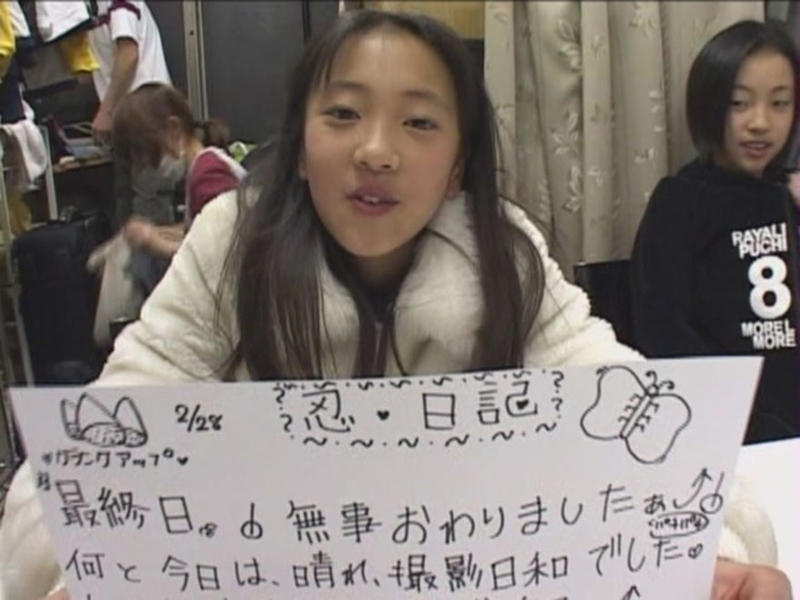 2/28
忍♥日記
クランクアップ♥
最終日。無事おわりましたぁ
パチパチ
何と今日は、晴れ、撮影日和でした♥
RAYALI
PUCHI
8
MORE L
MORE